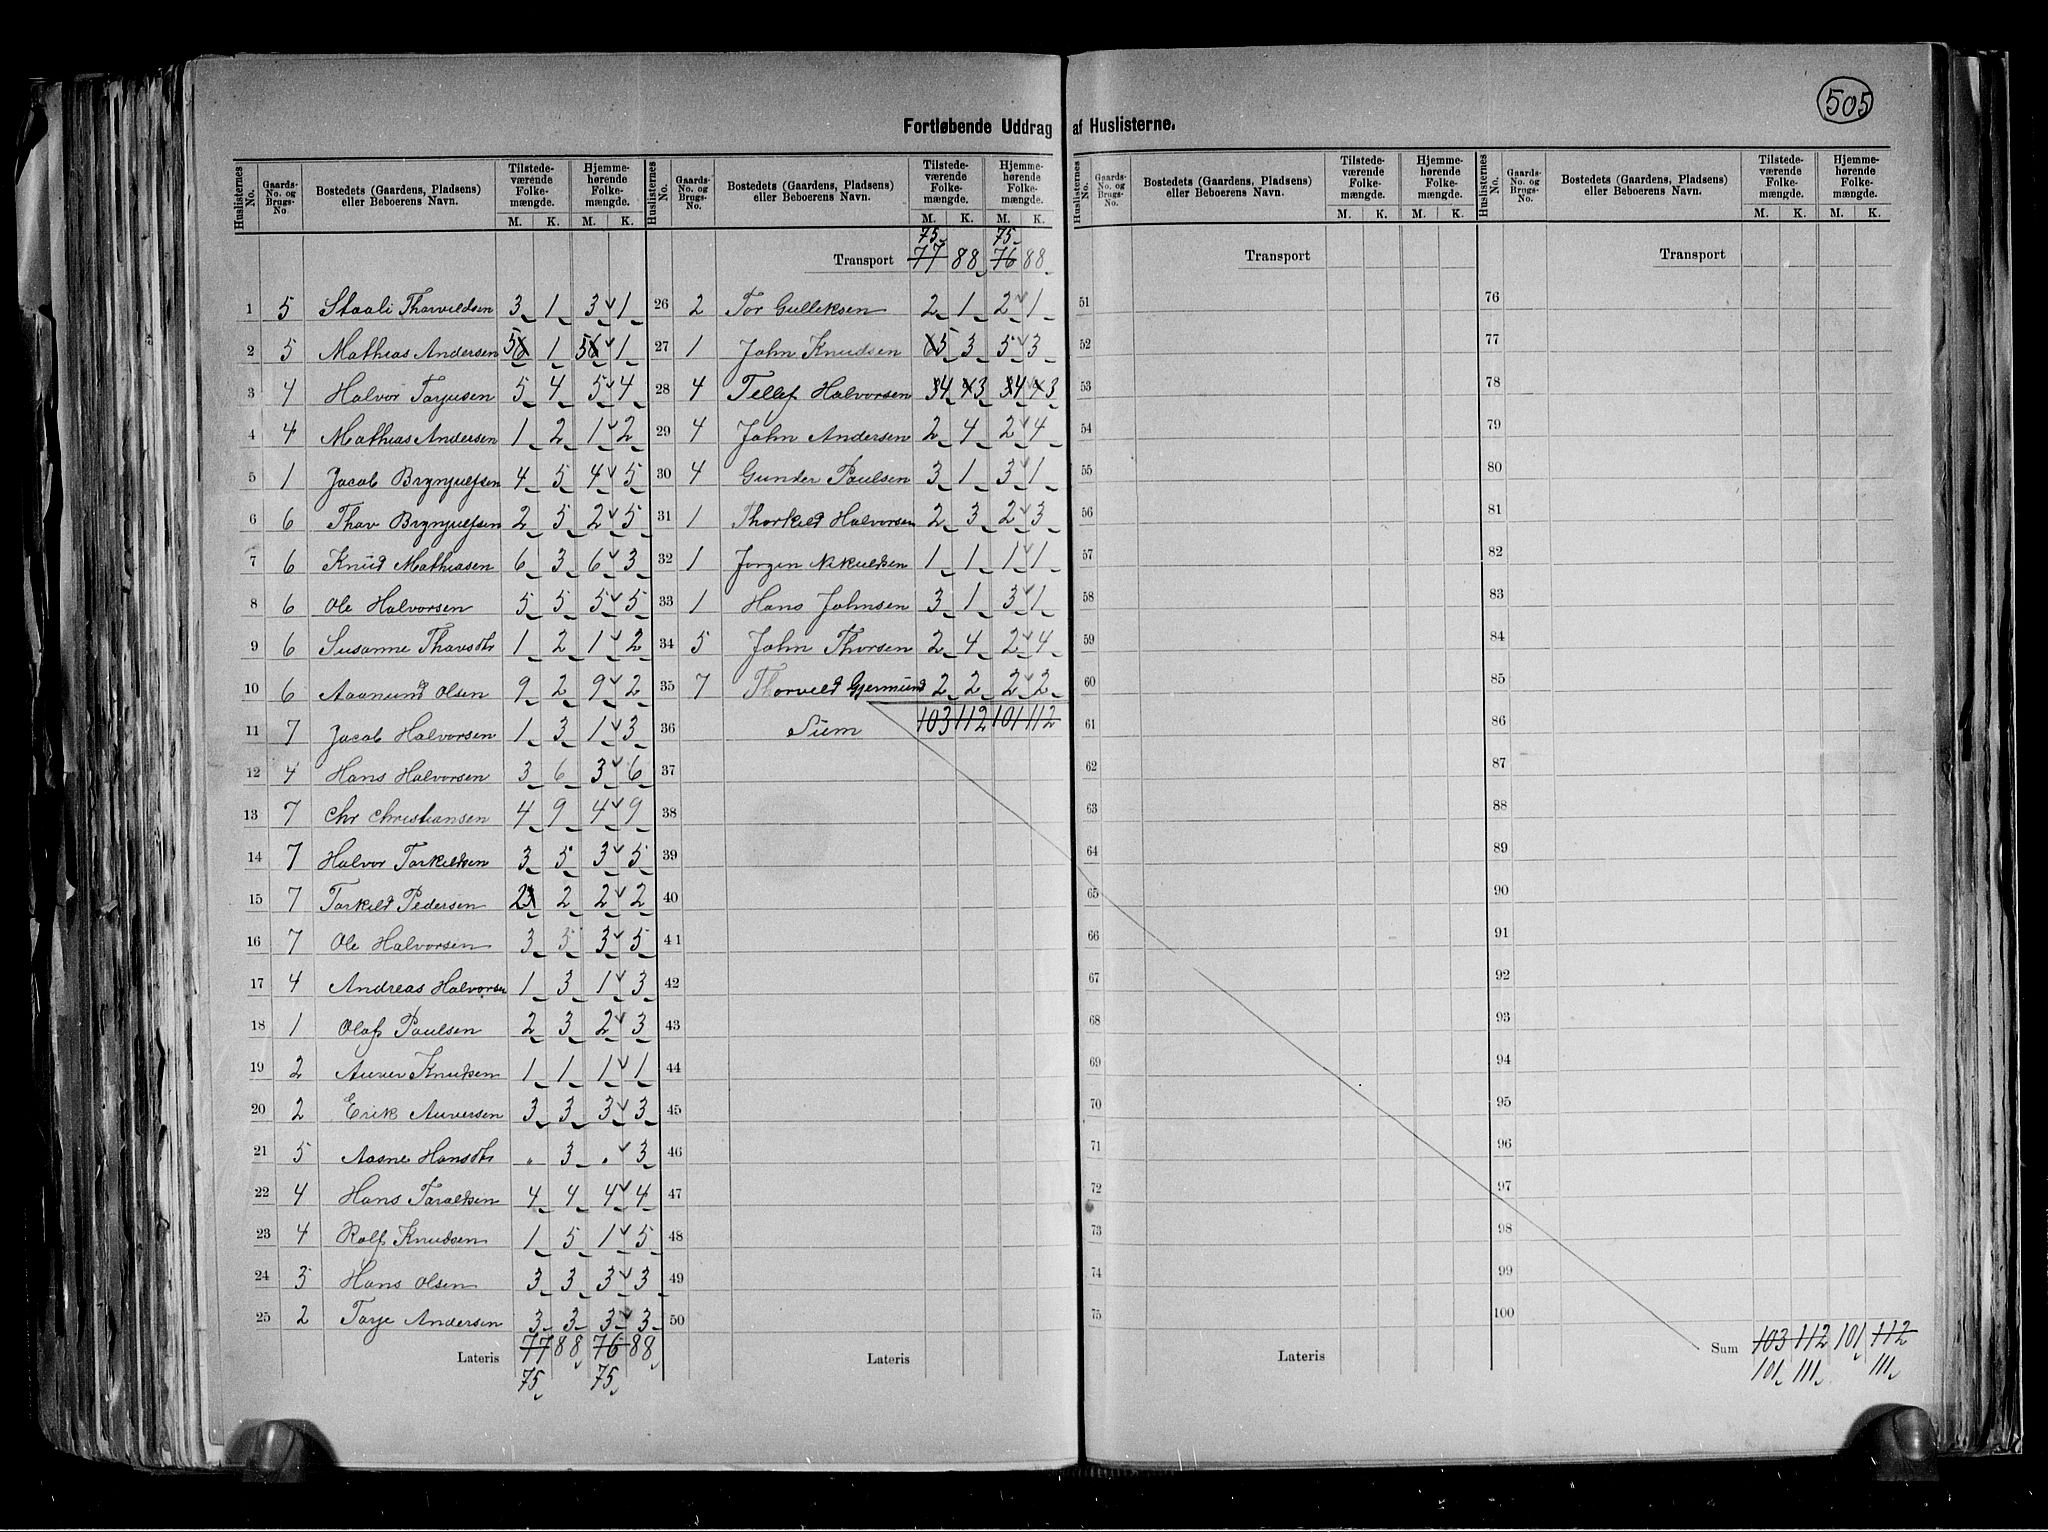 505
Fortløbende Uddrag af Huslisterne.
Huslisternes No. Gaards-No. og Brugs-No. Bostedets (Gaardens, Pladsens) eller Beboerens Navn. Tilstedeværende Folkemængde. M. K. Hjemmehørende Folkemængde. M. K.
1 5 Staali Thorvildsen 3 1 3 1
2 5 Mathias Andersen 5 6 1 5 6 1
3 4 Halvor Tarjusen 5 4 5 4
4 4 Mathias Andersen 1 2 1 2
5 1 Jacob Brynjulfsen 4 5 4 5
6 6 Thav Brynjulfsen 2 5 2 5
7 6 Knud Mathiasen 6 3 6 3
8 6 Ole Halvorsen 5 5 5 5
9 6 Susanne Thavsdtr 1 2 1 2
10 6 Aanund Olsen 9 2 9 2
11 7 Jacob Halvorsen 1 3 1 3
12 4 Hans Halvorsen 3 6 3 6
13 7 Chr Christiansen 4 9 4 9
14 7 Halvor Tarkildsen 3 5 3 5
15 7 Tarkild Pedersen 2 3 2 2 2
16 7 Ole Halvorsen 3 5 3 5
17 4 Andreas Halvorsen 1 3 1 3
18 1 Olaf Paulsen 2 3 2 3
19 2 Auver Knudsen 1 1 1 1
20 2 Erik Auversen 3 3 3 3
21 5 Aasne Hansdtr " 3 " 3
22 4 Hans Taraldsen 4 4 4 4
23 4 Rolf Knudsen 1 5 1 5
24 3 Hans Olsen 3 3 3 3
25 2 Tarje Andersen 3 3 3 3
Lateris 77 88 76 88
75 75
Huslisternes No. Gaards-No. og Brugs-No. Bostedets (Gaardens, Pladsens) eller Beboerens Navn. Tilstedeværende Folkemængde. M. K. Hjemmehørende Folkemængde. M. K.
75 75
Transport 77 88 76 88
26 2 Tor Gulleksen 2 1 2 1
27 1 John Knudsen 6 5 3 5 3
28 4 Tellef Halvorsen 3 4 4 3 3 4 4 3
29 4 John Andersen 2 4 2 4
30 4 Gunder Paulsen 3 1 3 1
31 1 Thorkild Halvorsen 2 3 2 3
32 1 Jørgen Nikulsen 1 1 1 1
33 1 Hans Johnsen 3 1 3 1
34 5 John Thorsen 2 4 2 4
35 7 Thorvild Gjermund 2 2 2 2
36 Sum 103 112 101 112
37
38
39
40
41
42
43
44
45
46
47
48
49
50
Lateris
Huslisternes No. Gaards-No. og Brugs-No. Bostedets (Gaardens, Pladsens) eller Beboerens Navn. Tilstedeværende Folkemængde. M. K. Hjemmehørende Folkemængde. M. K.
Transport
51
52
53
54
55
56
57
58
59
60
61
62
63
64
65
66
67
68
69
70
71
72
73
74
75
Lateris
Huslisternes No. Gaards-No. og Brugs-No. Bostedets (Gaardens, Pladsens) eller Beboerens Navn. Tilstedeværende Folkemængde. M. K. Hjemmehørende Folkemængde. M. K.
Transport
76
77
78
79
80
81
82
83
84
85
86
87
88
89
90
91
92
93
94
95
96
97
98
99
100
Sum 103 112 101 112
101 111 111